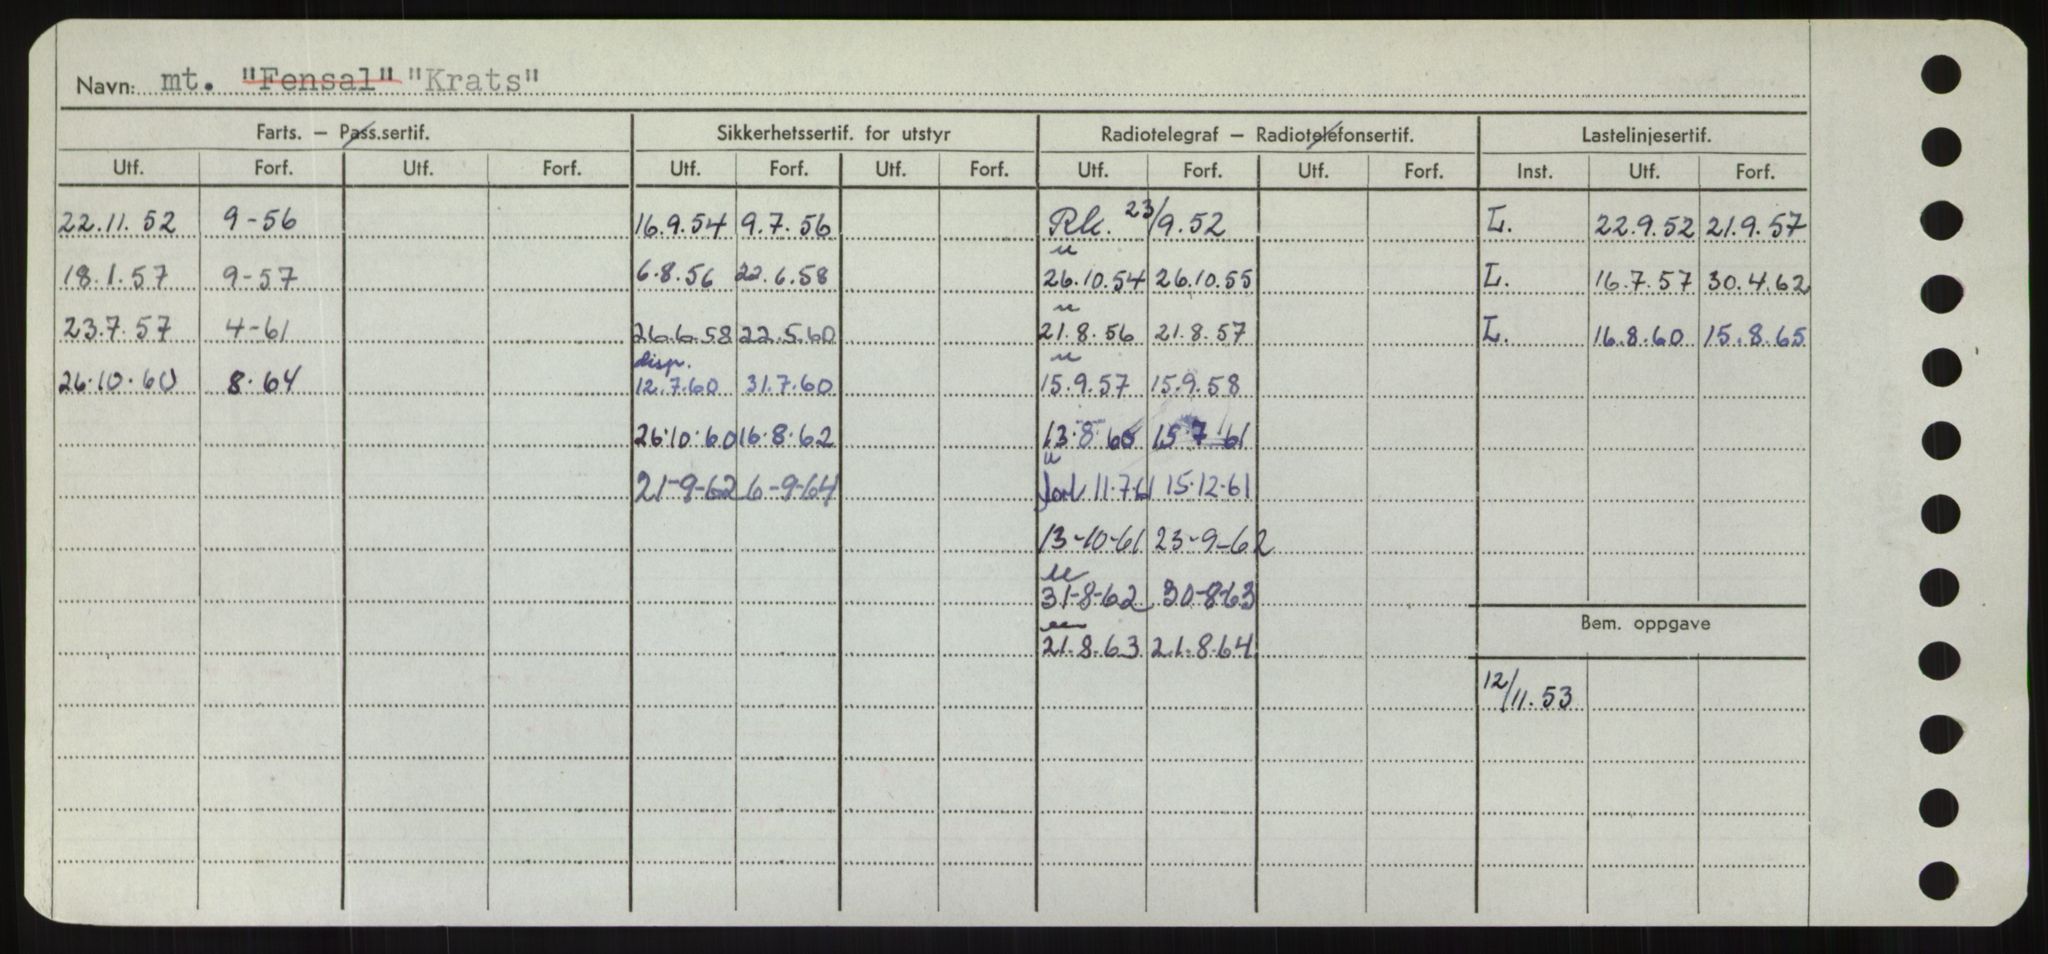 Navn: mt. "Fensal" "Krats"
Farts. – Pass.sertif. Sikkerhetssertif. for utstyr Radiotelegraf – Radiotelefonsertif. Lastelinjesertif.
Utf. Forf. Utf. Forf. Utf. Forf. Utf. Forf. Utf. Forf. Utf. Forf. Inst. Utf. Forf.
22.11.52 9-56 16.9.54 9.7.56 Rk. 23/9.52 L. 22.9.52 21.9.57
18.1.57 9-57 6.8.56 22.6.58 26.10.54 26.10.55 L. 16.7.57 30.4.62
23.7.57 4-61 26.6.58 22.5.60 21.8.56 21.8.57 L. 16.8.60 15.8.65
disp.
26.10.60 8.64 12.7.60 31.7.60 15.9.57 15.9.58
26.10.60 16.8.62 13.8.60 15.7.61
21-9-62 6-9-64 11.7.61 15.12.61
13-10-61 23-9-62
31-8-62 30-8-63
Bem. oppgave
21.8.63 21.8.64
12/11.53